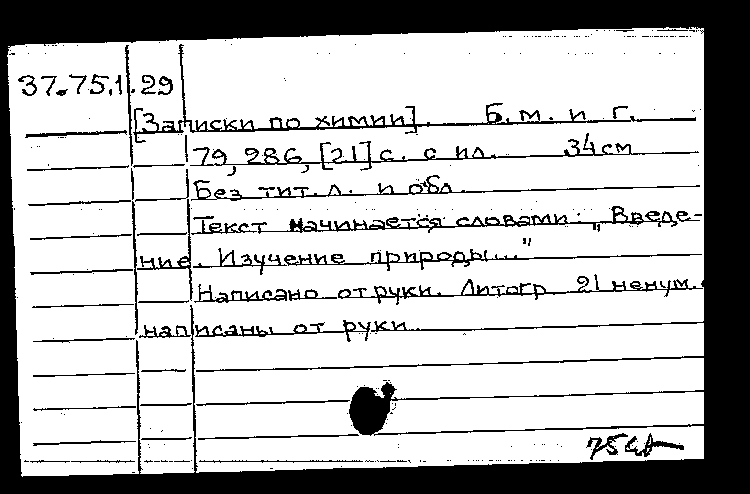 37.75.1.29
[Записки по химии]. Б. м. и г.
79, 286, [21] с. с ил. 34 см
Без тит. л. и обл.
Текст начинается словами: „Введе-
ние. Изучение природы..."
Написано от руки. Литогр 21 ненум. с
написаны от руки.